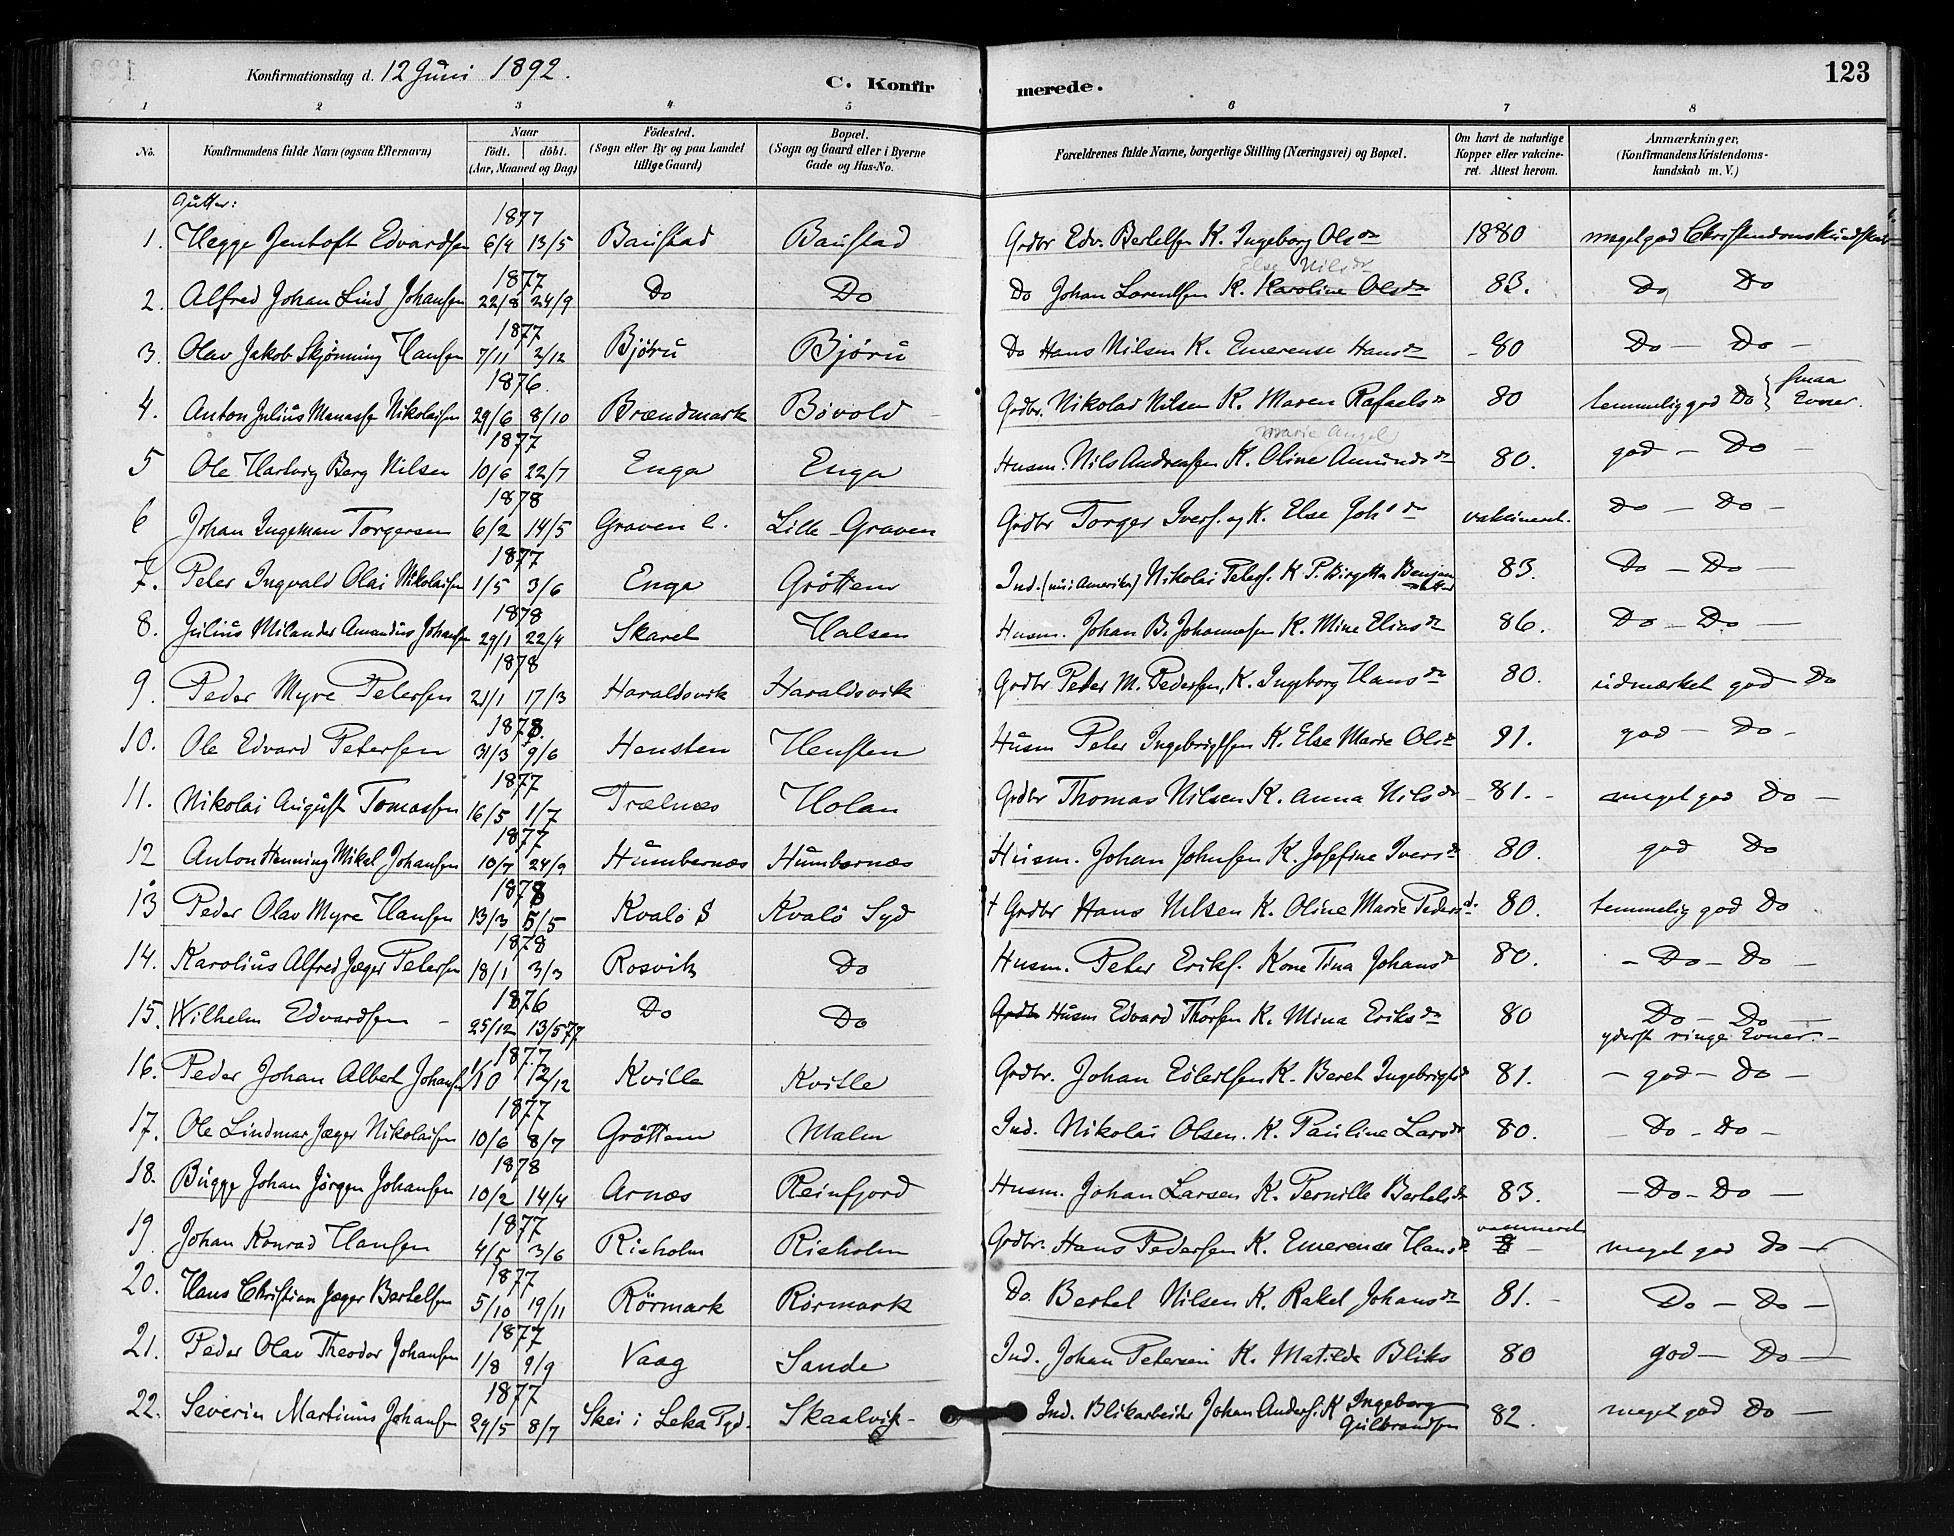 Konfirmationsdag d. 12 Juni 1892.
C. Konfirmerede.
123
1 2 3 4 5 6 7 8
No. | Konfirmandens fulde Navn (ogsaa Efternavn) | Naar födt. | döbt. (Aar, Maaned og Dag) | Födested. (Sogn eller By og paa Landet tillige Gaard) | Bopæl. (Sogn og Gaard eller i Byerne Gade og Hus-No. | Forældrenes fulde Navne, borgerlige Stilling (Næringsvei) og Bopæl. | Om havt de naturlige Kopper eller vakcineret. Attest herom. | Anmærkninger, (Konfirmandens Kristendomskundskab m. V.)
Gutter:
1. Hegge Jentoft Edvardsen 1877 6/4 13/5 Baustad Baustad Grdbr Edv. Bertelsen K. Ingeborg Olsdr 1880 meget god Christendomskundskab
2. Alfred Johan Lind Johansen 1877 22/8 24/9 Do Do Do Johan Lorentsen K. Karoline Olsdr Else Nilsdr 83. Do Do
3. Olav Jakob Skjönning Hansen 1877 7/11 2/12 Björu Björu Do Hans Nilsen K. Emerense Hansdr - 80 Do - Do -
4. Anton Julius Manasse Nikolaisen 1876. 29/6 8/10 Brændmark Bövold Grdbr. Nikolai Nilsen K. Maren Rafaelsdr 80 temmelig god Do smaa Evner.
5 Ole Hartvig Berg Nilsen 1877 10/6 22/7 Enga Enga Husm. Nils Andreassen K. Oline Amundsdr Marie Angel 80. god - Do -
6 Johan Ingeman Torgersen 1878 6/2 14/5 Graven l. Lille-Graven Grdbr Torger Ivers. og K. Else Johsdr vakcineret. Do - Do -
7. Peter Ingvald Olai Nikolaisen 1877 1/5 3/6 Enga Gröttem Ind. (nu i Amerika) Nikolai Peters. K P. Birgitta Benjaminsdatter 83. Do - Do -
8. Julius Milander Amandus Johansen 1878 29/1 22/4 Skaret Halsen Husm. Johan B. Johannesen K. Mine Eliasdr 86. Do - Do -
9. Peder Myre Petersen 1878 21/1 17/3 Haraldsvik Haraldsvik Grdbr Peter M. Pedersen, K. Ingeborg Hansdr 80. udmærket god - Do
10. Ole Edvard Petersen 1878. 31/3 9/6 Hensten Hensten Husm Peter Ingebrigtsen K. Else Marie Olsdr 91. god - Do -
11. Nikolai August Tomassen 1877 16/5 1/7 Trælnæs Holan Grdbr Thomas Nilsen K. Anna Nilsdr - 81. - meget god Do -
12 Anton Henning Mikal Johansen 1877 10/7 24/9 Humbernæs Humbernæs Husm. Johan Johnsen K. Josefine Iversdr 80. god Do
13 Peder Olav Myre Hansen 1878 13/3 5/5 Kvalö S Kvalö Syd † Grdbr Hans Nilsen K. Oline Marie Pedersd. 80. temmelig god Do
14. Karolius Alfred Jæger Petersen 1878 18/1 3/3 Rosvik Do Husm. Peter Eriks. Kone Tina Johansdr 80. - Do - Do -
15. Wilhelm Edvardsen - 1876 25/12 13/5 77 Do Do Grdbr Husm Edvard Thorsen K. Mina Eriksdr 80 Do - Do - yderst ringe Evner. -
16. Peder Johan Albert Johansen 1877 1/10 12/12 Kvitle Kvitle Grdbr. Johan Eilertsen K. Beret Ingebrigtsd 81. - god - Do -
17. Ole Lindmar Jæger Nikolaisen 1877 10/6 8/7 Gröttem Malm Ind. Nikolai Olsen. K. Pauline Larsdr 80. - Do - Do -
18. Bugge Johan Jörgen Johansen 1878 10/2 14/4 Arnæs Reinfjord Husm. Johan Larsen K. Pernille Bertelsdr 83. - Do - Do -
19. Johan Konrad Hansen 1877 4/5 3/6 Risholm Risholm Grdbr. Hans Pedersen K. Emerense Hansdr vaccineret meget god Do -
20. Hans Christian Jæger Bertelsen 1877 5/10 19/11 Rörmark Rörmark Do. Bertel Nilsen K. Rakel Johansdr 81. - Do - Do -
21. Peder Olav Theodor Johansen 1877 1/8 9/9 Vaag Sande Ind. Johan Petersen K. Matilde Bliks 80 god - Do -
22. Severin Martinus Johansen 1877 29/5 8/7 Skei i Leka Pgd. Skaalvik - Ind. Blikarbeider Johan Anders. K Ingeborg Gulbrandsen 82. meget god Do -